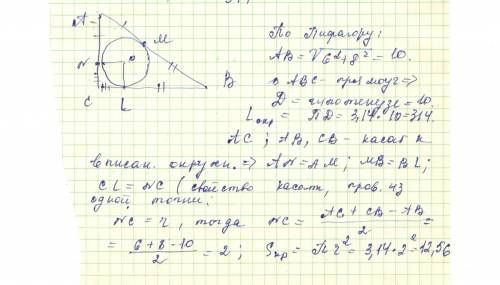 A
M
N
o
B
C
L
По Пифагору:
AB = √6²+8² = 10.
о ABC - прямоуг =>
D = гипотенузе = 10.
Lокр = ПD = 3,14 · 10 = 314.
AC ; AB, CB - касат к
вписан. окружн. => AN = AM ; MB = BL ;
CL = NC ( свойство касат, пров. из
одной точки ;
NC = r, тогда NC = AC + CB - AB / 2 =
= 6 + 8 - 10 / 2 = 2 ; Sкр = Пr² = 3,14 · 2² = 12,56